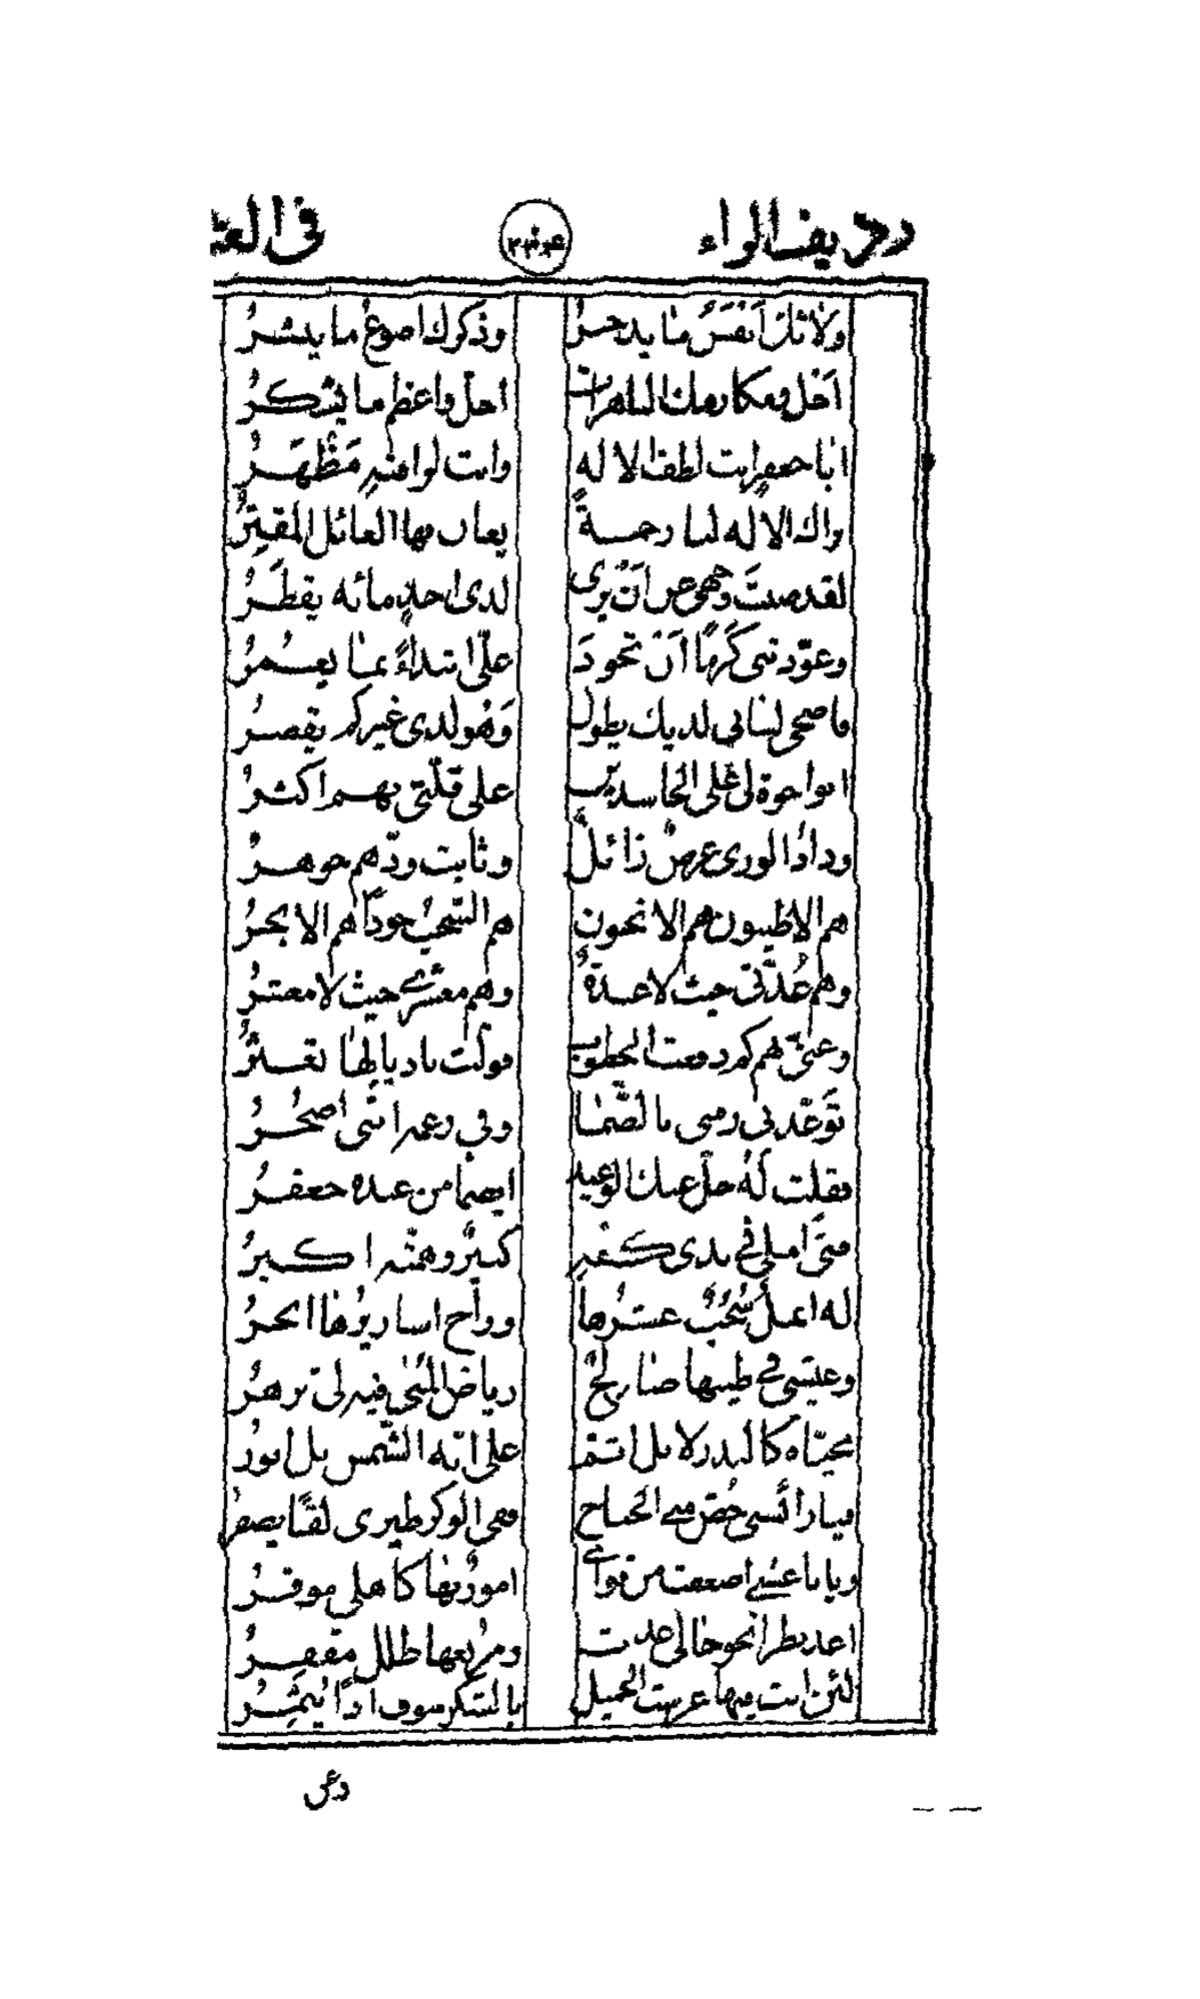 رديف الراء
في
ولاؤك أنفس ما يدخرُ وذكرك اضوع ما ينشرُ
أجل ومكارمك الباهرات اجلّ واعظم ما يشكرُ
ابا جعفر انت لطف الاله وانت لرافته مَظْهَرُ
واك الاله لنا رحمةً يعاث بها العائل المقترُ
لقد صنتَ وجهي عن أنْ يرى لدى احدٍ مائه يقطَرُ
وعوّدتني كَرمًا أنْ تجودَ عليّ ابتداءً بما يغمرُ
فاضحى لساني لديك يطول وَهْو لدى غيركم يقصرُ
ابوا خوة لي على الحاسدين على قلّتي بهم أكثرُ
ودادُ الورى عرضٌ زائلٌ وثابت ودّهم جوهرُ
هم الاطيبون هم الانجبون هم السّحبُ جودًا هم الابحرُ
وهم عُدّتي حيث لا عدةٌ وهم معشري حيث لا معشرُ
وعنّي بهم كم دفعت الخطوب فولّت باذيالها تعثرُ
توعّدني زمني بالضّما وفي زعمه انّني أضجُرُ
فقلت لهُ خلّ عنك الوعيد ايضما من عنده جعفرُ
متى املي في ندى كفّه كبيرٌ وهمّته اكبرُ
له انملٌ سُحُبٌ عشرُها وراح اساريرُها ابحرُ
وعيشي في طيبها صالحٌ رياض المُنى فيه لي تزهرُ
محيّاه كالبدر لا بل اتمّ على انّه الشّمس بل انورُ
فيا رائشي حُصّ مني الجناح ففي الوكر طيري لقًا يصفرُ
ويا باعثي اضعفت من قواي امورٌ بها كاهلي موقرُ
اعد نظرا نحو حالي غدت ومربعها طلل مقفرُ
لئن انت فيها غرست الجميل بالشكر سوف اذًا يُثمِرُ